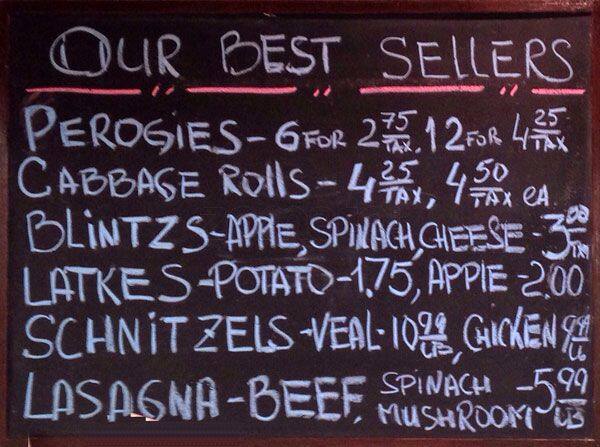 OUR BEST SELLERS
PEROGIES - 6 FOR 2 75/TAX, 12 FOR 4 25/TAX
CABBAGE ROLLS - 4 25/TAX, 4 50/TAX EA.
BLINTZS - APPLE, SPINACH, CHEESE - 3 00/TAX
LATKES - POTATO - 1.75, APPLE - 2.00
SCHNITZELS - VEAL - 10 99/LB, CHICKEN 9 99/LB
LASAGNA - BEEF, SPINACH MUSHROOM - 5 99/LB